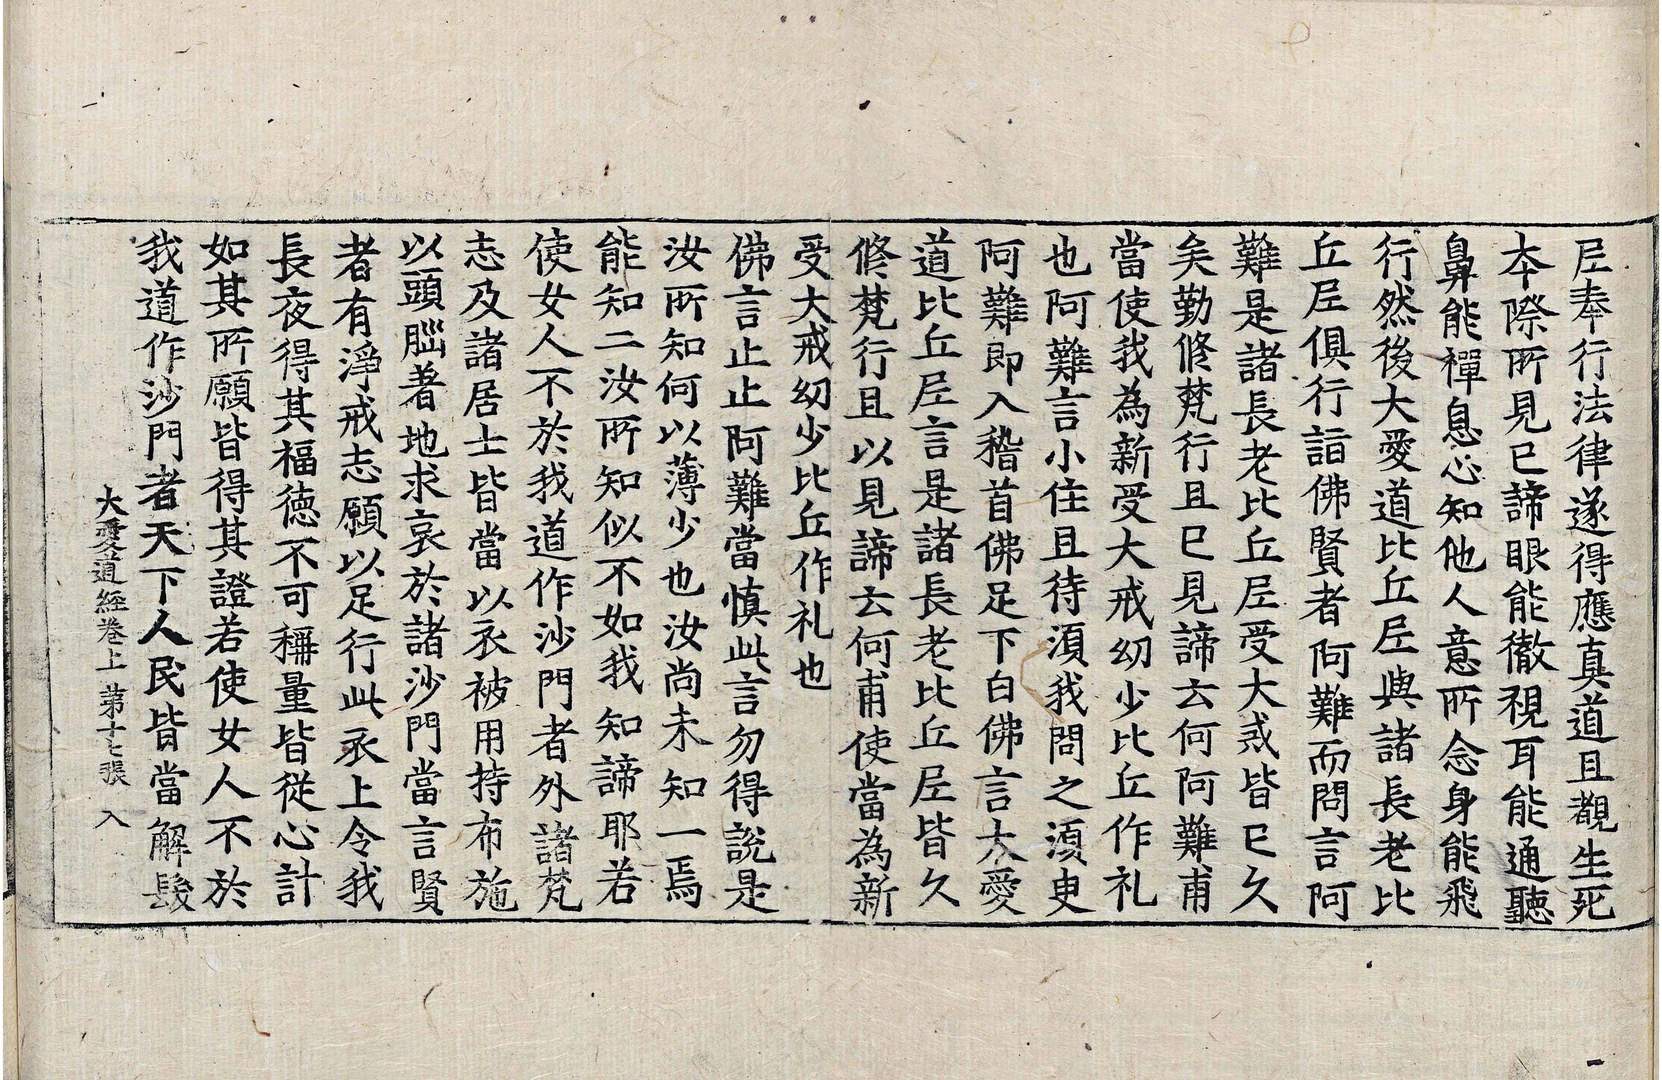 尼奉行法律遂得應真道且觀生死
本際所見已諦眼能徹視耳能通聽
鼻能禪息心知他人意所念身能飛
行然後大愛道比丘尼與諸長老比
丘尼俱行詣佛賢者阿難而問言阿
難是諸長老比丘尼受大戒皆已久
矣勤修梵行且已見諦云何阿難甫
當使我為新受大戒幼少比丘作礼
也阿難言小住且待須我問之須臾
阿難即入稽首佛足下白佛言大愛
道比丘尼言是諸長老比丘尼皆久
修梵行且以見諦云何甫使當為新
受大戒幼少比丘作礼也
佛言止止阿難當慎此言勿得說是
汝所知何以薄少也汝尚未知一焉
能知二汝所知似不如我知諦耶若
使女人不於我道作沙門者外諸梵
志及諸居士皆當以衣被用持布施
以頭𦛁著地求哀於諸沙門當言賢
者有淨戒志願以足行此衣上令我
長夜得其福德不可稱量皆從心計
如其所願皆得其證若使女人不於
我道作沙門者天下人民皆當解髮
大愛道經卷上 第十七張 入